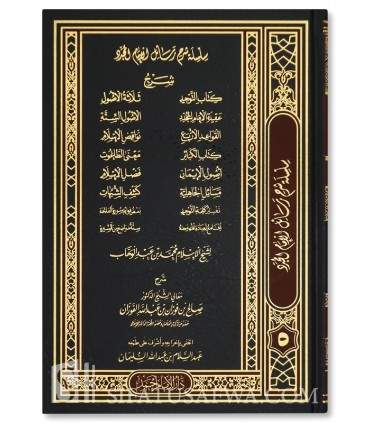 سلسلة شرح رسائل الإمام المجدد
شرح
كتاب التوحيد ثلاثة الأصول
عقيدة الإمام المجدد الأصول الستة
القواعد الأربع نواقض الإسلام
كتاب الكبائر معنى الطاغوت
أصول الإيمان فضل الإسلام
مسائل الجاهلية كشف الشبهات
تفسير كلمة التوحيد
لشيخ الإسلام محمد بن عبد الوهاب
شرح
معالي الشيخ الدكتور
صالح بن فوزان بن عبد الله الفوزان
اعتنى بإخراجه وأشرف على طبعه
عبد السلام بن عبد الله السليمان
سلسلة شرح رسائل الإمام المجدد
١
SUNNASTORE
WWW.SIFATUSAFWA.COM